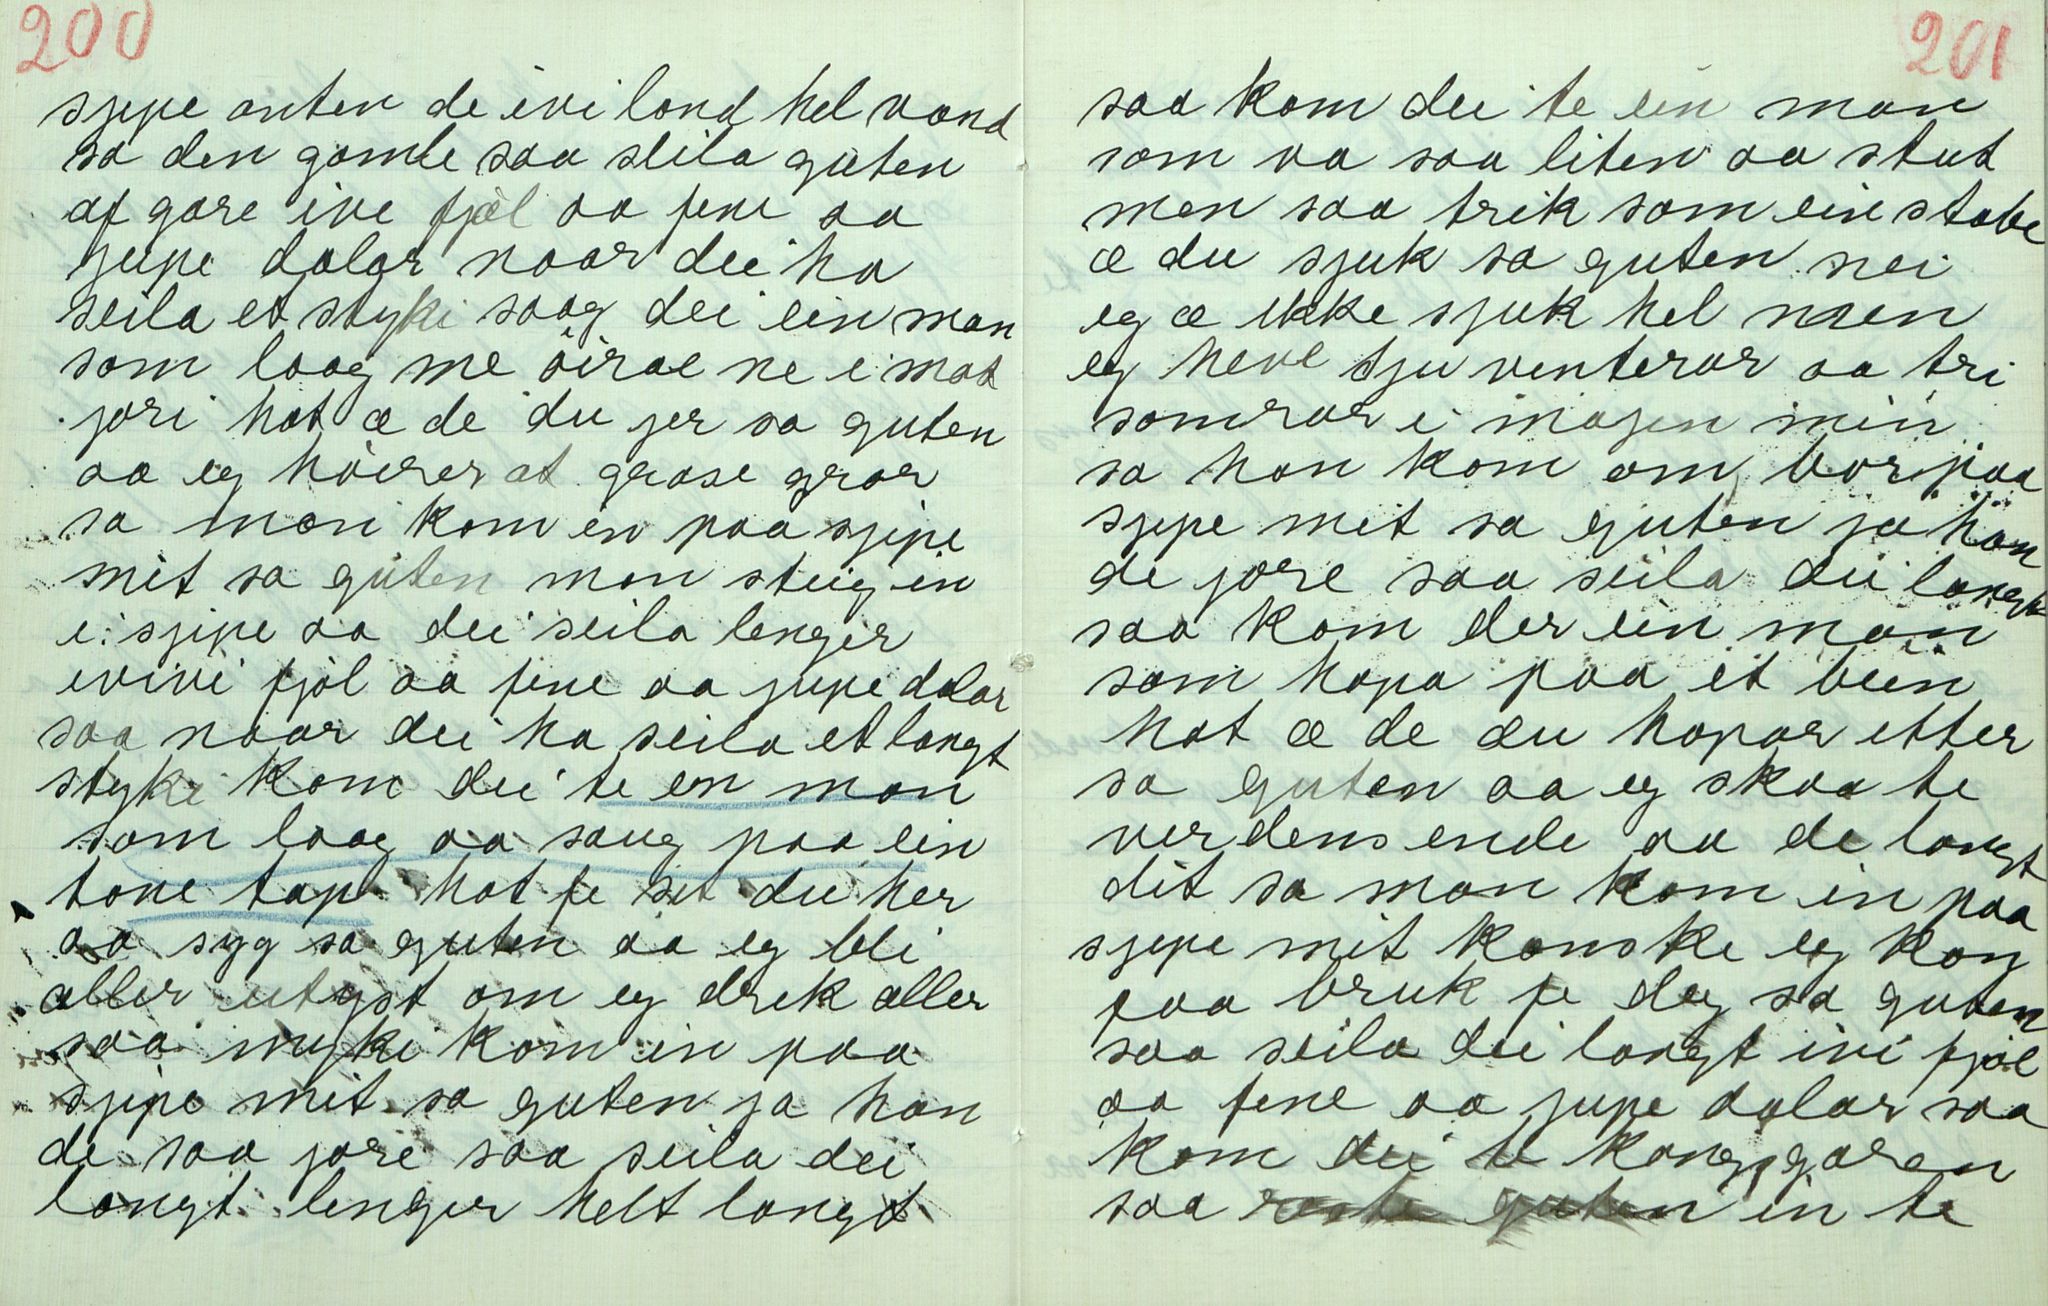 200
sjipe anten de é ivi lond hel vand
sa den gamle saa seila guten
af gare ive fjæl aa fene aa
jupe dalar naar dei ha
seila et styki saag dei ein man
som laag me öirae ne i mot
jori hot æ de du jer sa guten
aa eg höirer at græse gror
sa man kom en paa sjipe
mit sa guten man steig in
i sjipe aa dei seila lenger
ivivi fjöl aa fene aa jupe dalar
saa naar dei ha seila et langt
styki kom dei te en man
som laag aa saug paa ein
tone tap hot fe set du her
aa syg sa guten aa eg bli
aller utyst om eg drek aller
saa myki kom in paa
sjipe mit sa guten ja han
de saa jore saa seila dei
langt lenger helt langt
201
saa kom dei te ein man
som va saa liten aa stut
men saa trik som ein stabe
æ du sjuk sa guten nei
eg æ ikke sjuk hel men
eg heve sju venterar aa tri
somrar i magen min
sa han kom om bor paa
sjipe mit sa guten ja han
de jore saa seila dei langt
saa kom der ein man
som hopa paa et bein
hot æ de du hopar etter
sa guten aa eg skaa te
verdens ende aa de langt
dit sa man kom in paa
sjipe mit kanske eg kan
faa bruk fe deg sa guten
saa seila dei langt ivi fjöl
aa fene aa jupe dalar saa
kom dei te kongsgaren
saa guten in te